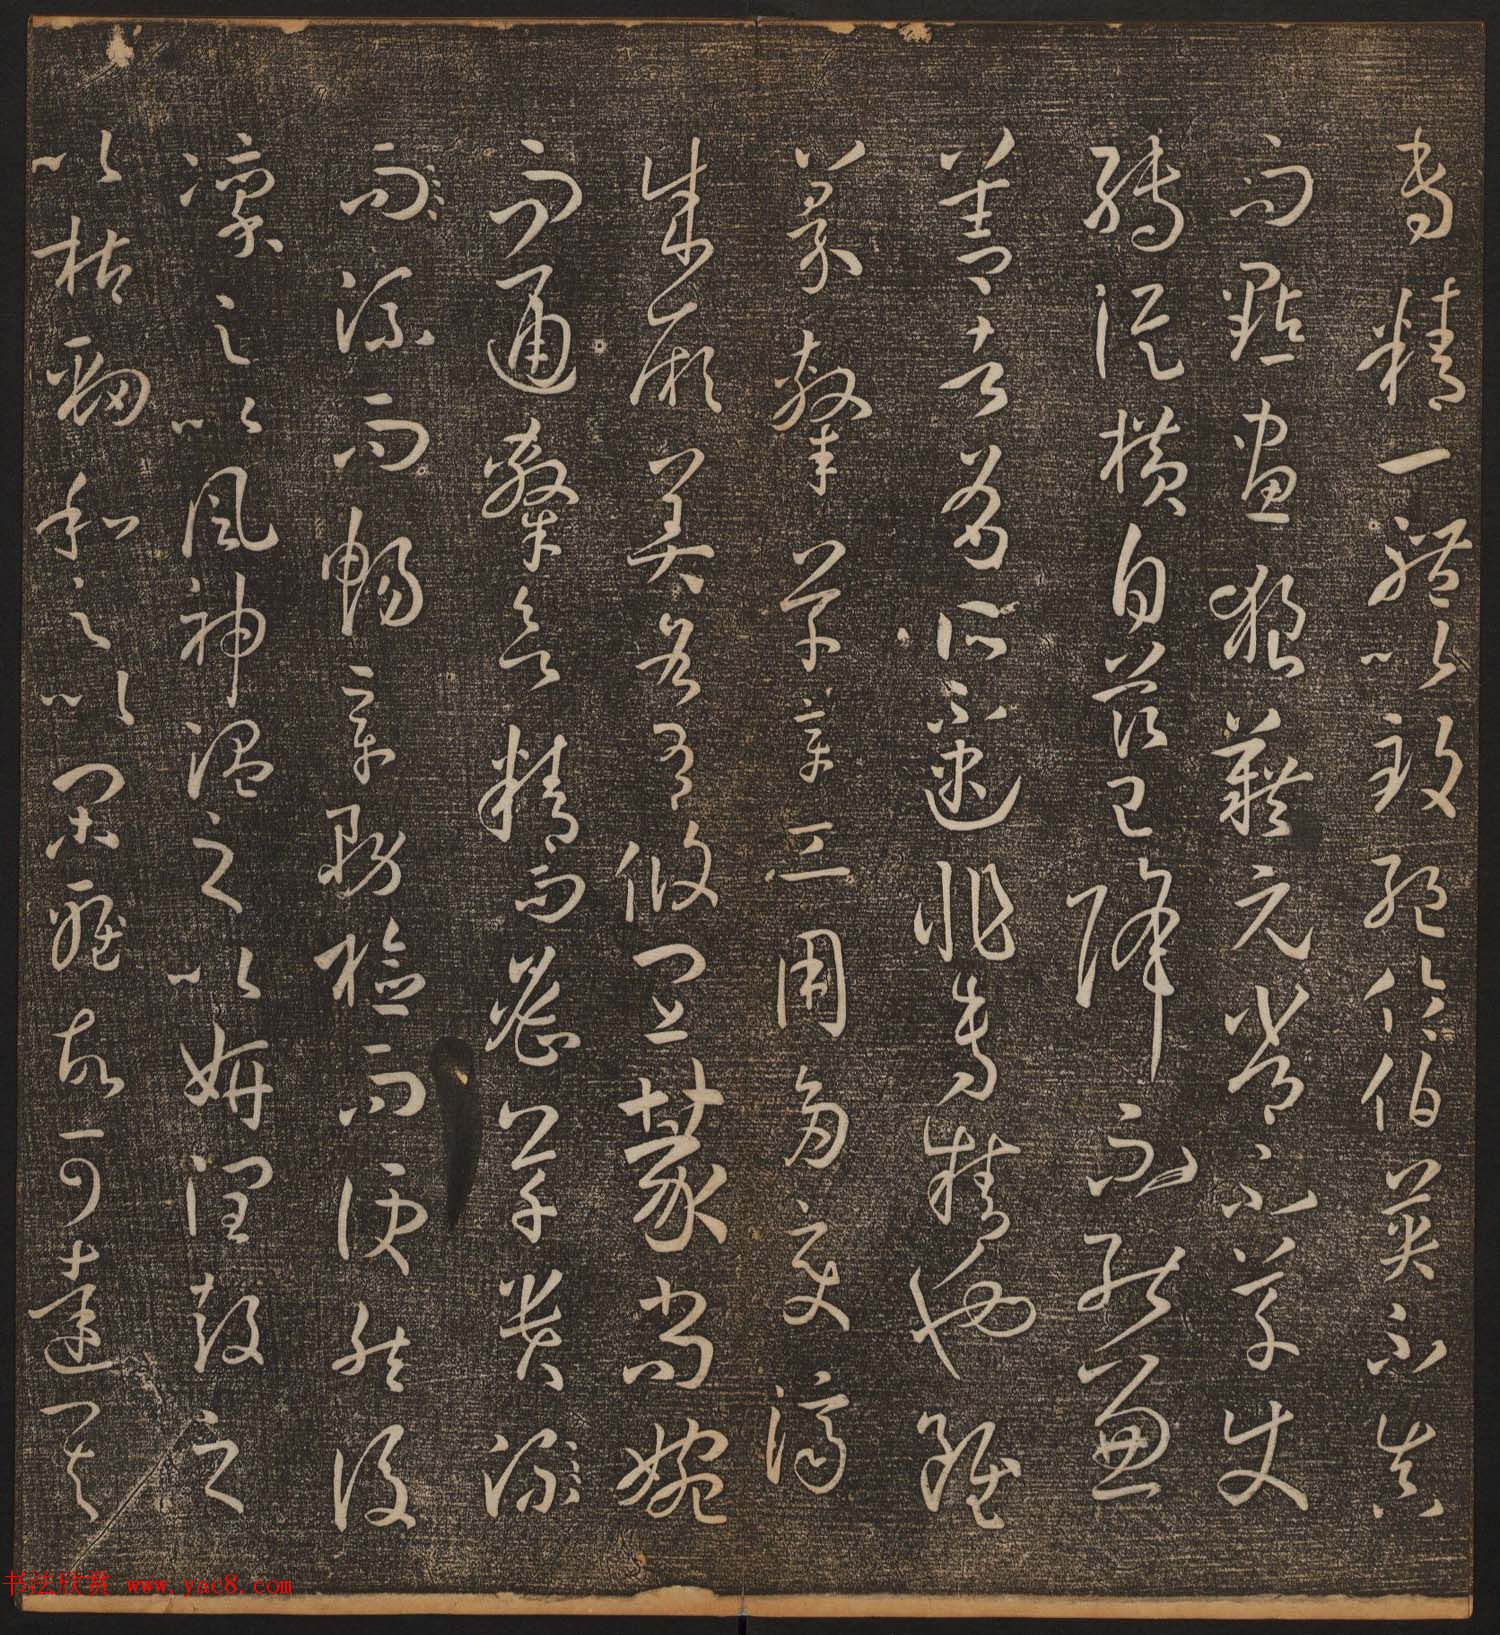 專精一體以致絕倫伯英不真
而點畫狼藉元常不草使
轉縱橫自茲已降不能兼
善者有所不逮非專精也雖
篆隸草章工用多變濟
成厥美各有攸宜篆尚婉
而通隸欲精而密草貴流
而流而暢章務檢而便然後
凜之以風神溫之以妍潤鼓之
以枯勁和之以閑雅故可達其
书法欣赏 www.yac8.com